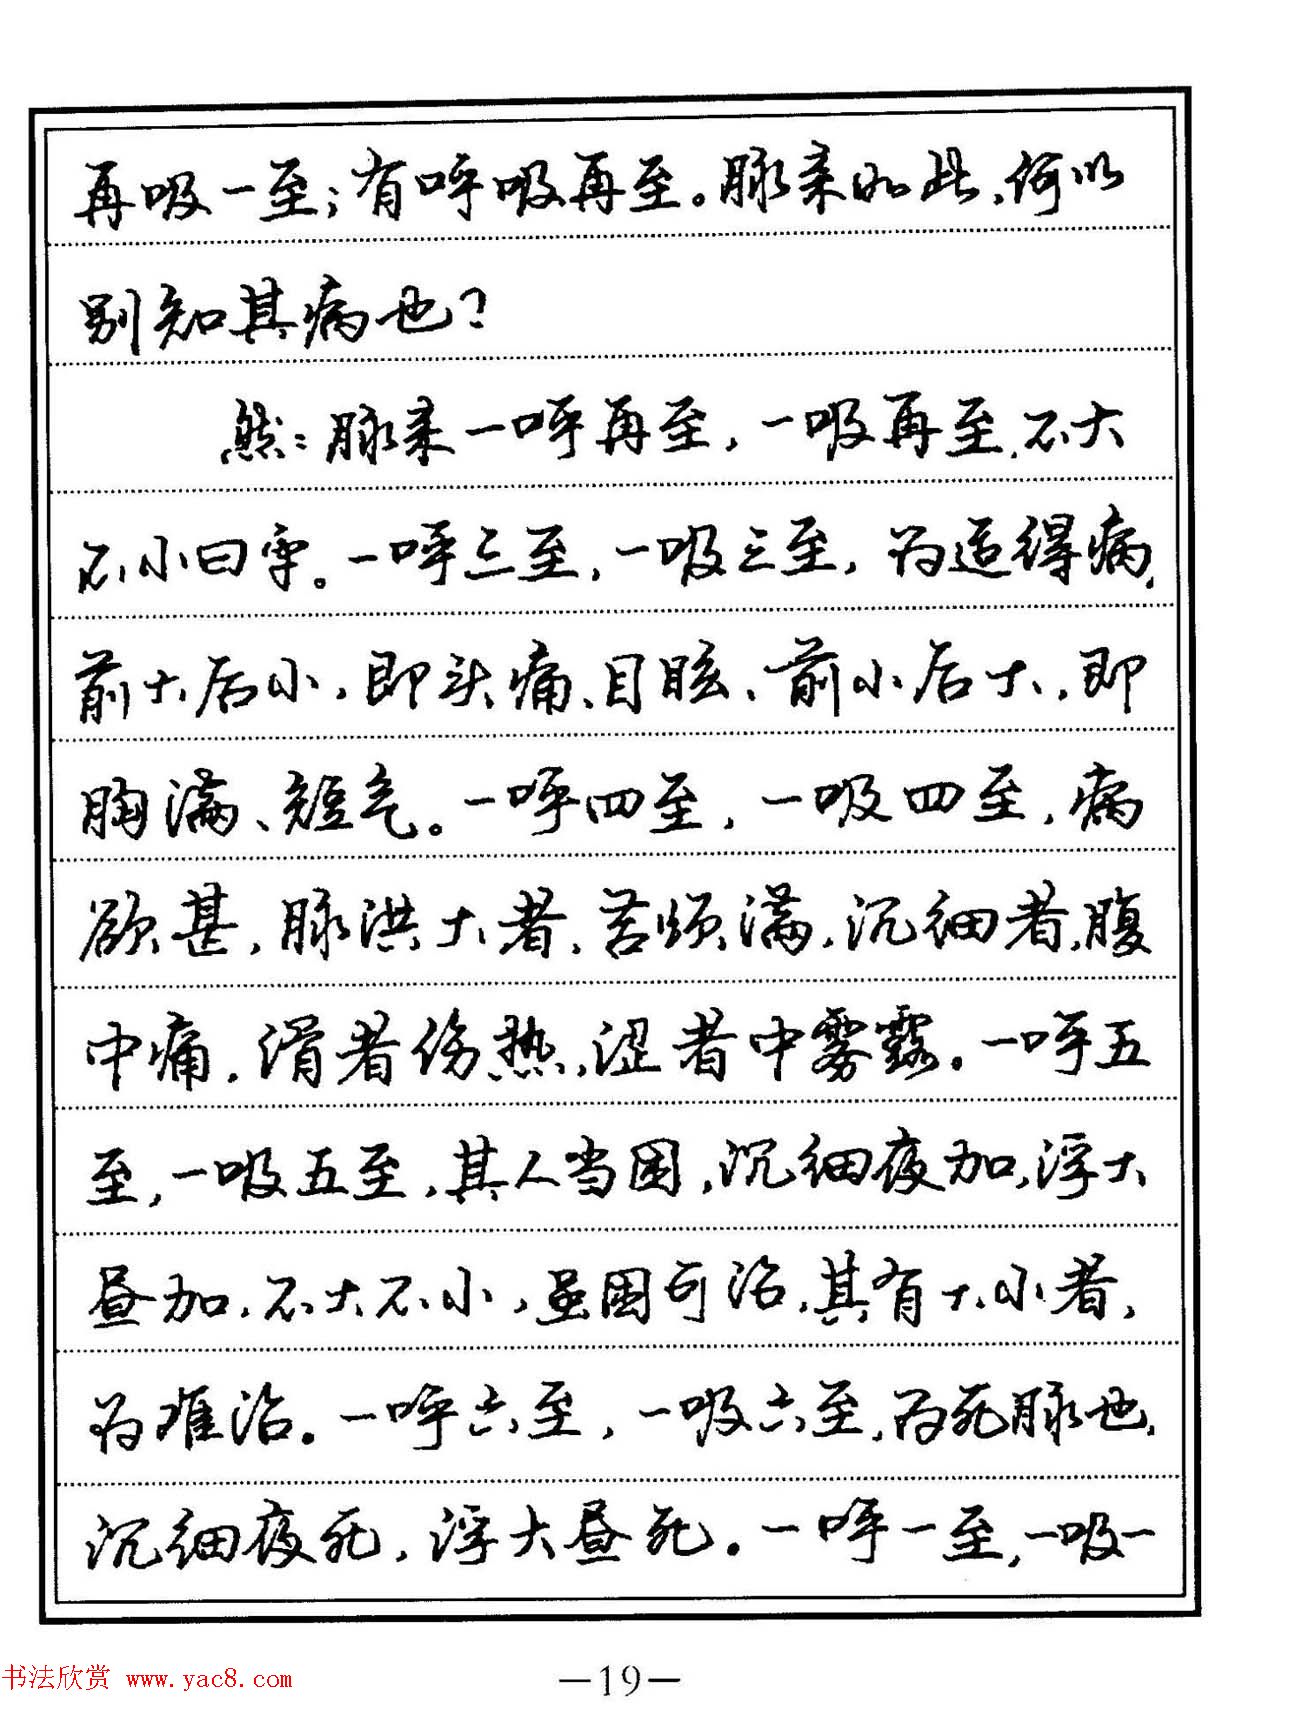 再吸一至；有呼吸再至。脉来如此，何以
别知其病也？
然：脉来一呼再至，一吸再至，不大
不小曰平。一呼三至，一吸三至，为适得病，
前大后小，即头痛、目眩、前小后大，即
胸满、短气。一呼四至，一吸四至，病
欲甚，脉洪大者，苦烦满，沉细者，腹
中痛，滑者伤热，涩者中雾露。一呼五
至，一吸五至，其人当困，沉细夜加，浮大
昼加，不大不小，虽困可治，其有大小者，
为难治。一呼六至，一吸六至，为死脉也，
沉细夜死，浮大昼死。一呼一至，一吸一
书法欣赏 www.yac8.com
—19—